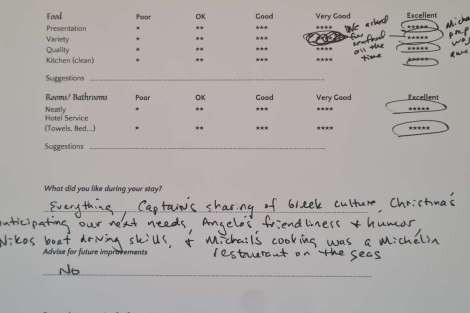 Food Poor OK Good Very Good Excellent
Presentation * ** *** **** *****
Variety * ** *** *****
Quality * ** *** **** *****
Kitchen (clean) * ** *** **** *****
We asked
for
seafood
all the
time
Suggestions
Rooms/ Bathrooms Poor OK Good Very Good Excellent
Neatly * ** *** **** *****
Hotel Service
(Towels, Bed...) * ** *** **** *****
Suggestions
What did you like during your stay?
Everything, Captain's sharing of Greek culture, Christina's
anticipating our next needs, Angelo's friendliness & humor,
Nikos boat driving skills, & Michail's cooking was a Michelin
restaurant on the seas
Advise for future improvements
No